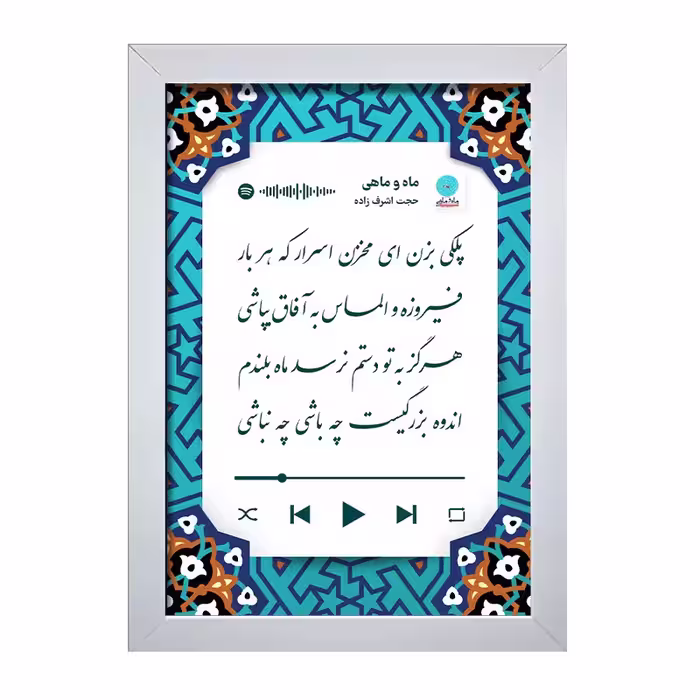 ماه و ماهی
حجت اشرف زاده
پلکی بزن ای مخزن اسرار که هر بار
فیروزه و الماس به آفاق بپاشی
هرگز به تو دستم نرسد ماه بلندم
اندوه بزرگیست چه باشی چه نباشی